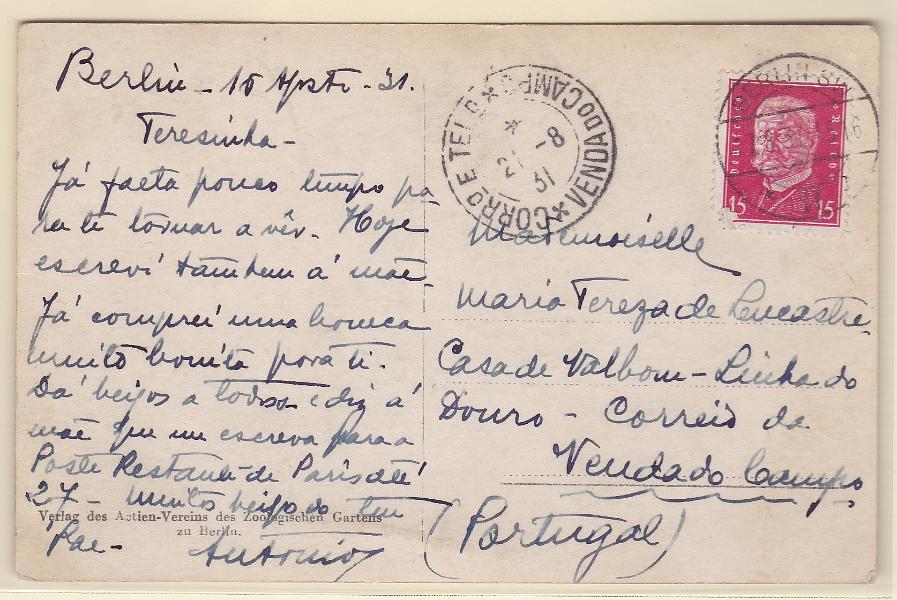 Berlin - 15 Agsto - 31.
Teresinha -
Já falta pouco tempo pa
ra te tornar a vêr. Hoje
escreví tambem á mãe.
Já comprei uma boneca
muito bonita para ti.
Dá beijos a todos e diz á
mãe que me escreva para a
Poste Restante de Paris até
27 - muitos beijos do teu
Pae -
Antonio
Verlag des Actien-Vereins des Zoologischen Gartens
zu Berlin.
CORRO E TELO
VENDA DO CAMPO
-8
31
Deutsches Reich
15 15
BERLIN
Mademoiselle
Maria Tereza de Lencastre
Casa de Valbom - Linha do
Douro - Correio da
Venda do Campo
(Portugal)